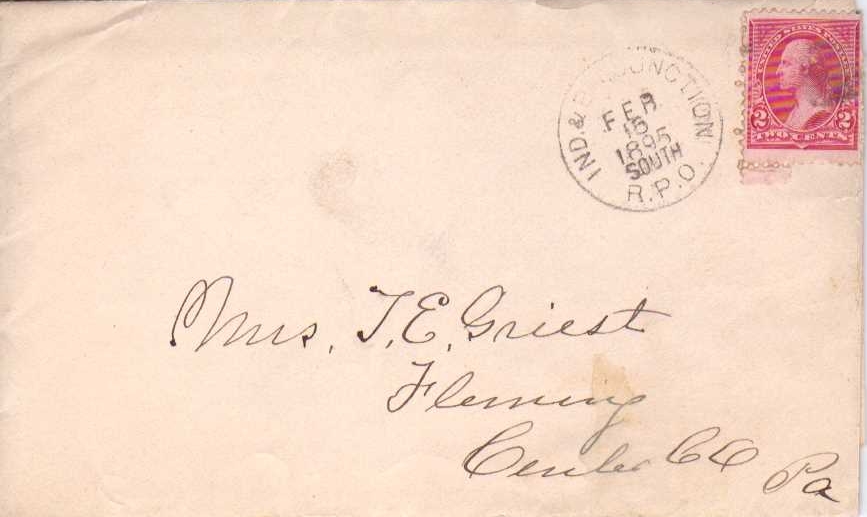 UNITED STATES POSTAGE
2 TWO CENTS 2
IND. & B. JUNCTION
FEB
16
1895
SOUTH
R.P.O.
Mrs. T. E. Griest
Fleming
Center Co
Pa